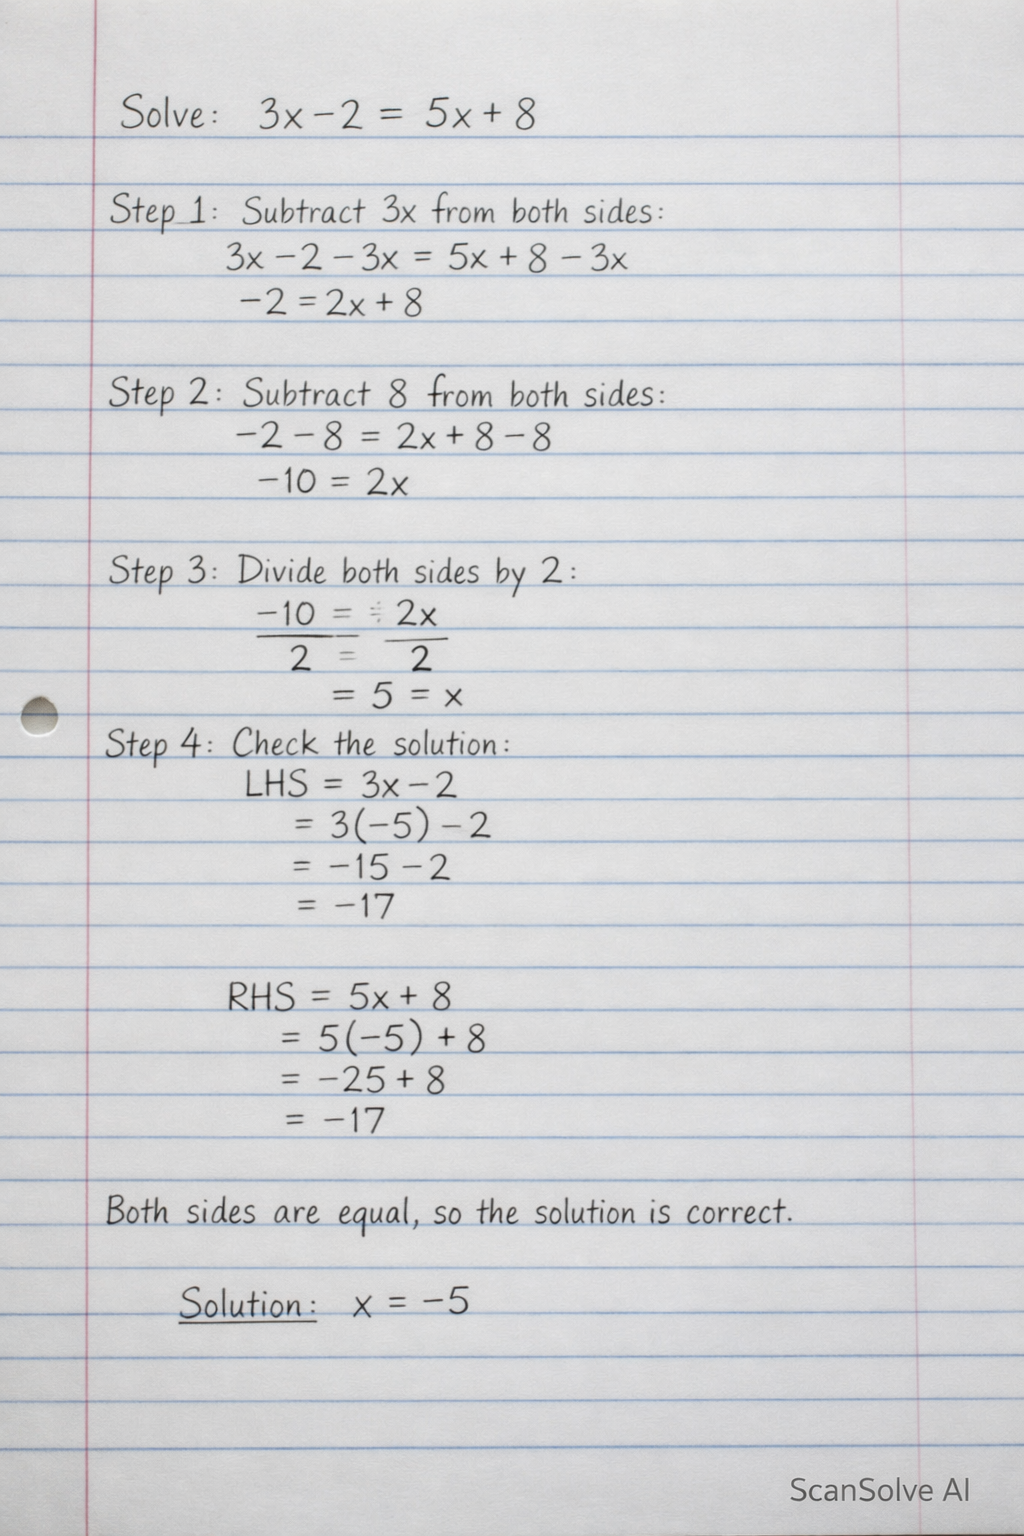 Solve: 3x - 2 = 5x + 8
Step 1: Subtract 3x from both sides:
3x - 2 - 3x = 5x + 8 - 3x
-2 = 2x + 8
Step 2: Subtract 8 from both sides:
-2 - 8 = 2x + 8 - 8
-10 = 2x
Step 3: Divide both sides by 2:
-10 = 2x
2 = 2
= 5 = x
Step 4: Check the solution:
LHS = 3x - 2
= 3(-5) - 2
= -15 - 2
= -17
RHS = 5x + 8
= 5(-5) + 8
= -25 + 8
= -17
Both sides are equal, so the solution is correct.
Solution: x = -5
ScanSolve AI